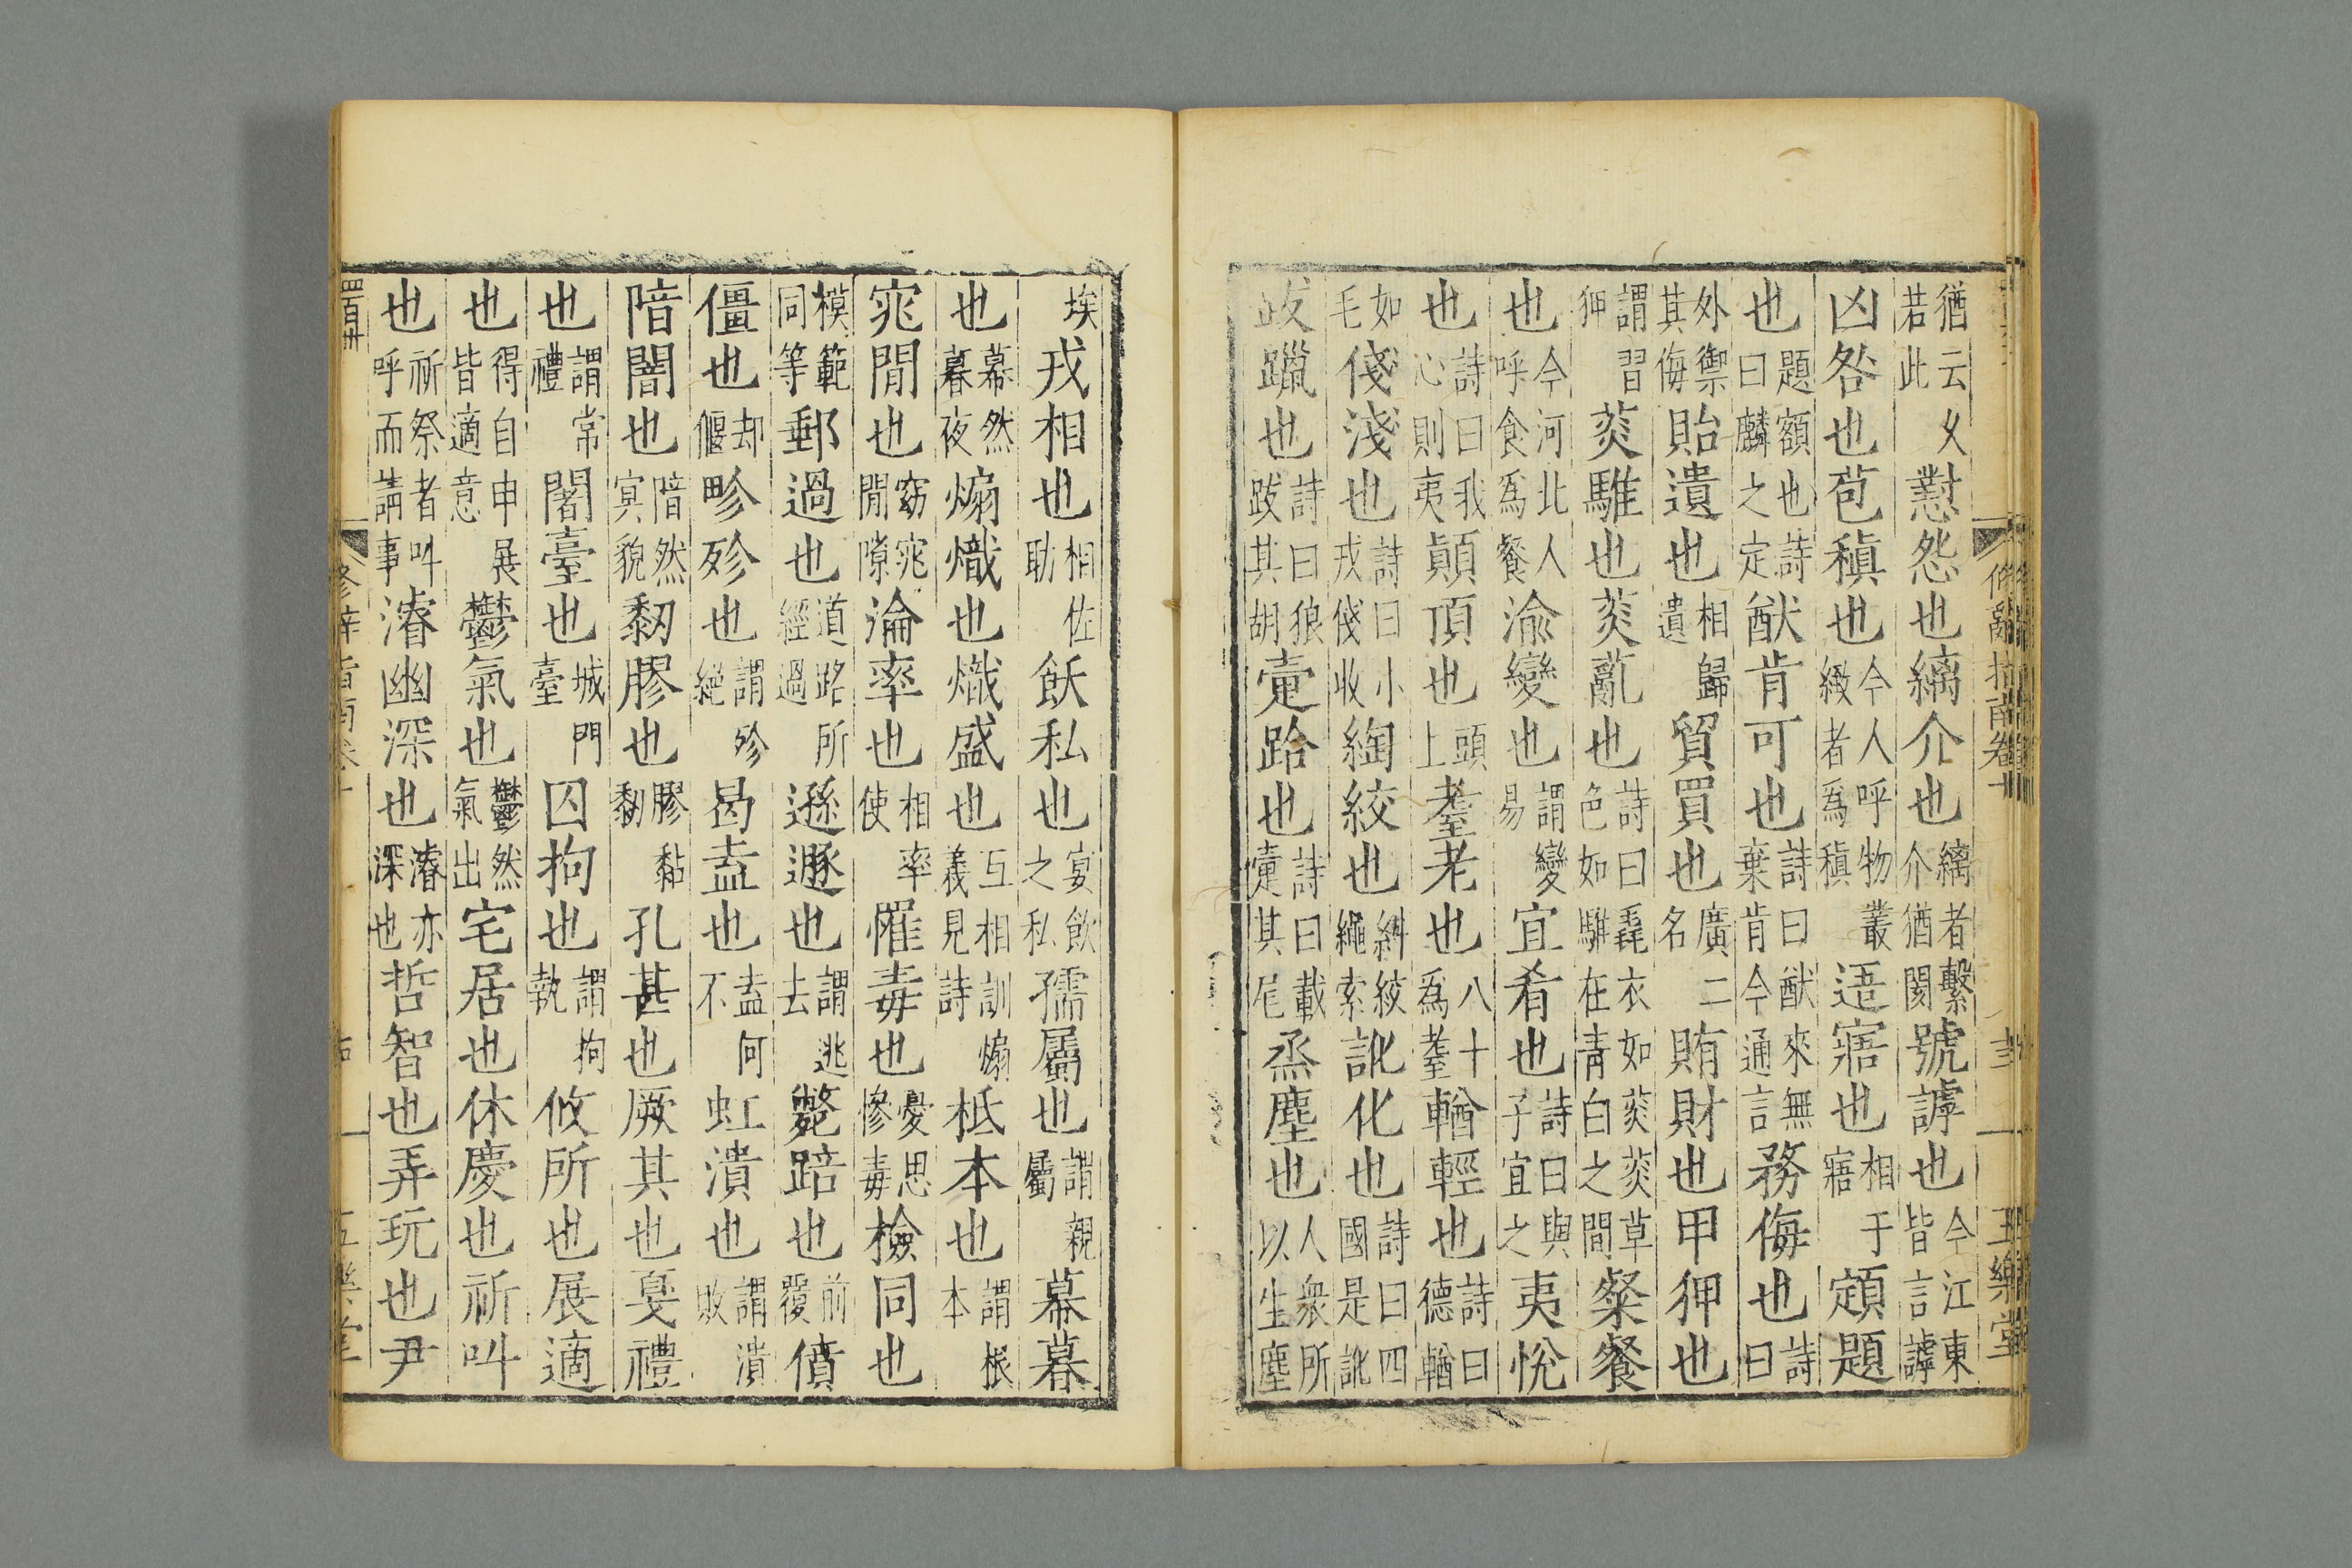 修辭指南卷十 十三 五樂堂
猶云乂若此懟怨也縭介也縭者繫介猶閡號謼也今江東皆言謼
凶咎也苞稹也今人呼物叢緻者爲稹逜寤也相于寤顁題
也題額也詩曰麟之定猷肯可也詩曰猷來無棄肯今通言務侮也詩曰
外禦其侮貽遺也相歸遺貿買也廣二名賄財也甲狎也
謂習狎菼騅也菼薍也詩曰毳衣如菼菼草色如騅在青白之間粲餐
也今河北人呼食爲餐渝變也謂變易宜肴也詩曰與子宜之夷悅
也詩曰我心則夷顛頂也頭上耋老也八十爲耋輶輕也詩曰德輶
如毛俴淺也詩曰小戎俴收綯絞也糾絞繩索訛化也詩曰四國是訛
跋躐也詩曰狼跋其胡疐跲也詩曰載疐其尾烝塵也人衆所以生塵
埃戎相也相佐助飫私也宴飲之私孺屬也謂親屬幕暮
也幕然暮夜煽熾也熾盛也互相訓煽義見詩柢本也謂根本
窕閒也窈窕閒隙淪率也相率使罹毒也憂思慘毒檢同也
模範同等郵過也道路所經過遜遯也謂逃去斃踣也前覆僨
僵也却偃畛殄也謂殄絕曷盍也盍何不虹潰也謂潰敗
陪闇也陪然冥貌䵒膠也膠黏䵒孔甚也厥其也戛禮
也謂常禮闍臺也城門臺囚拘也謂拘執攸所也展適
也得自申展皆適意鬱氣也鬱然氣出宅居也休慶也祈叫
也祈祭者叫呼而請事濬幽深也濬亦深也哲智也弄玩也尹
四百卅 修辭指南卷十 五樂堂